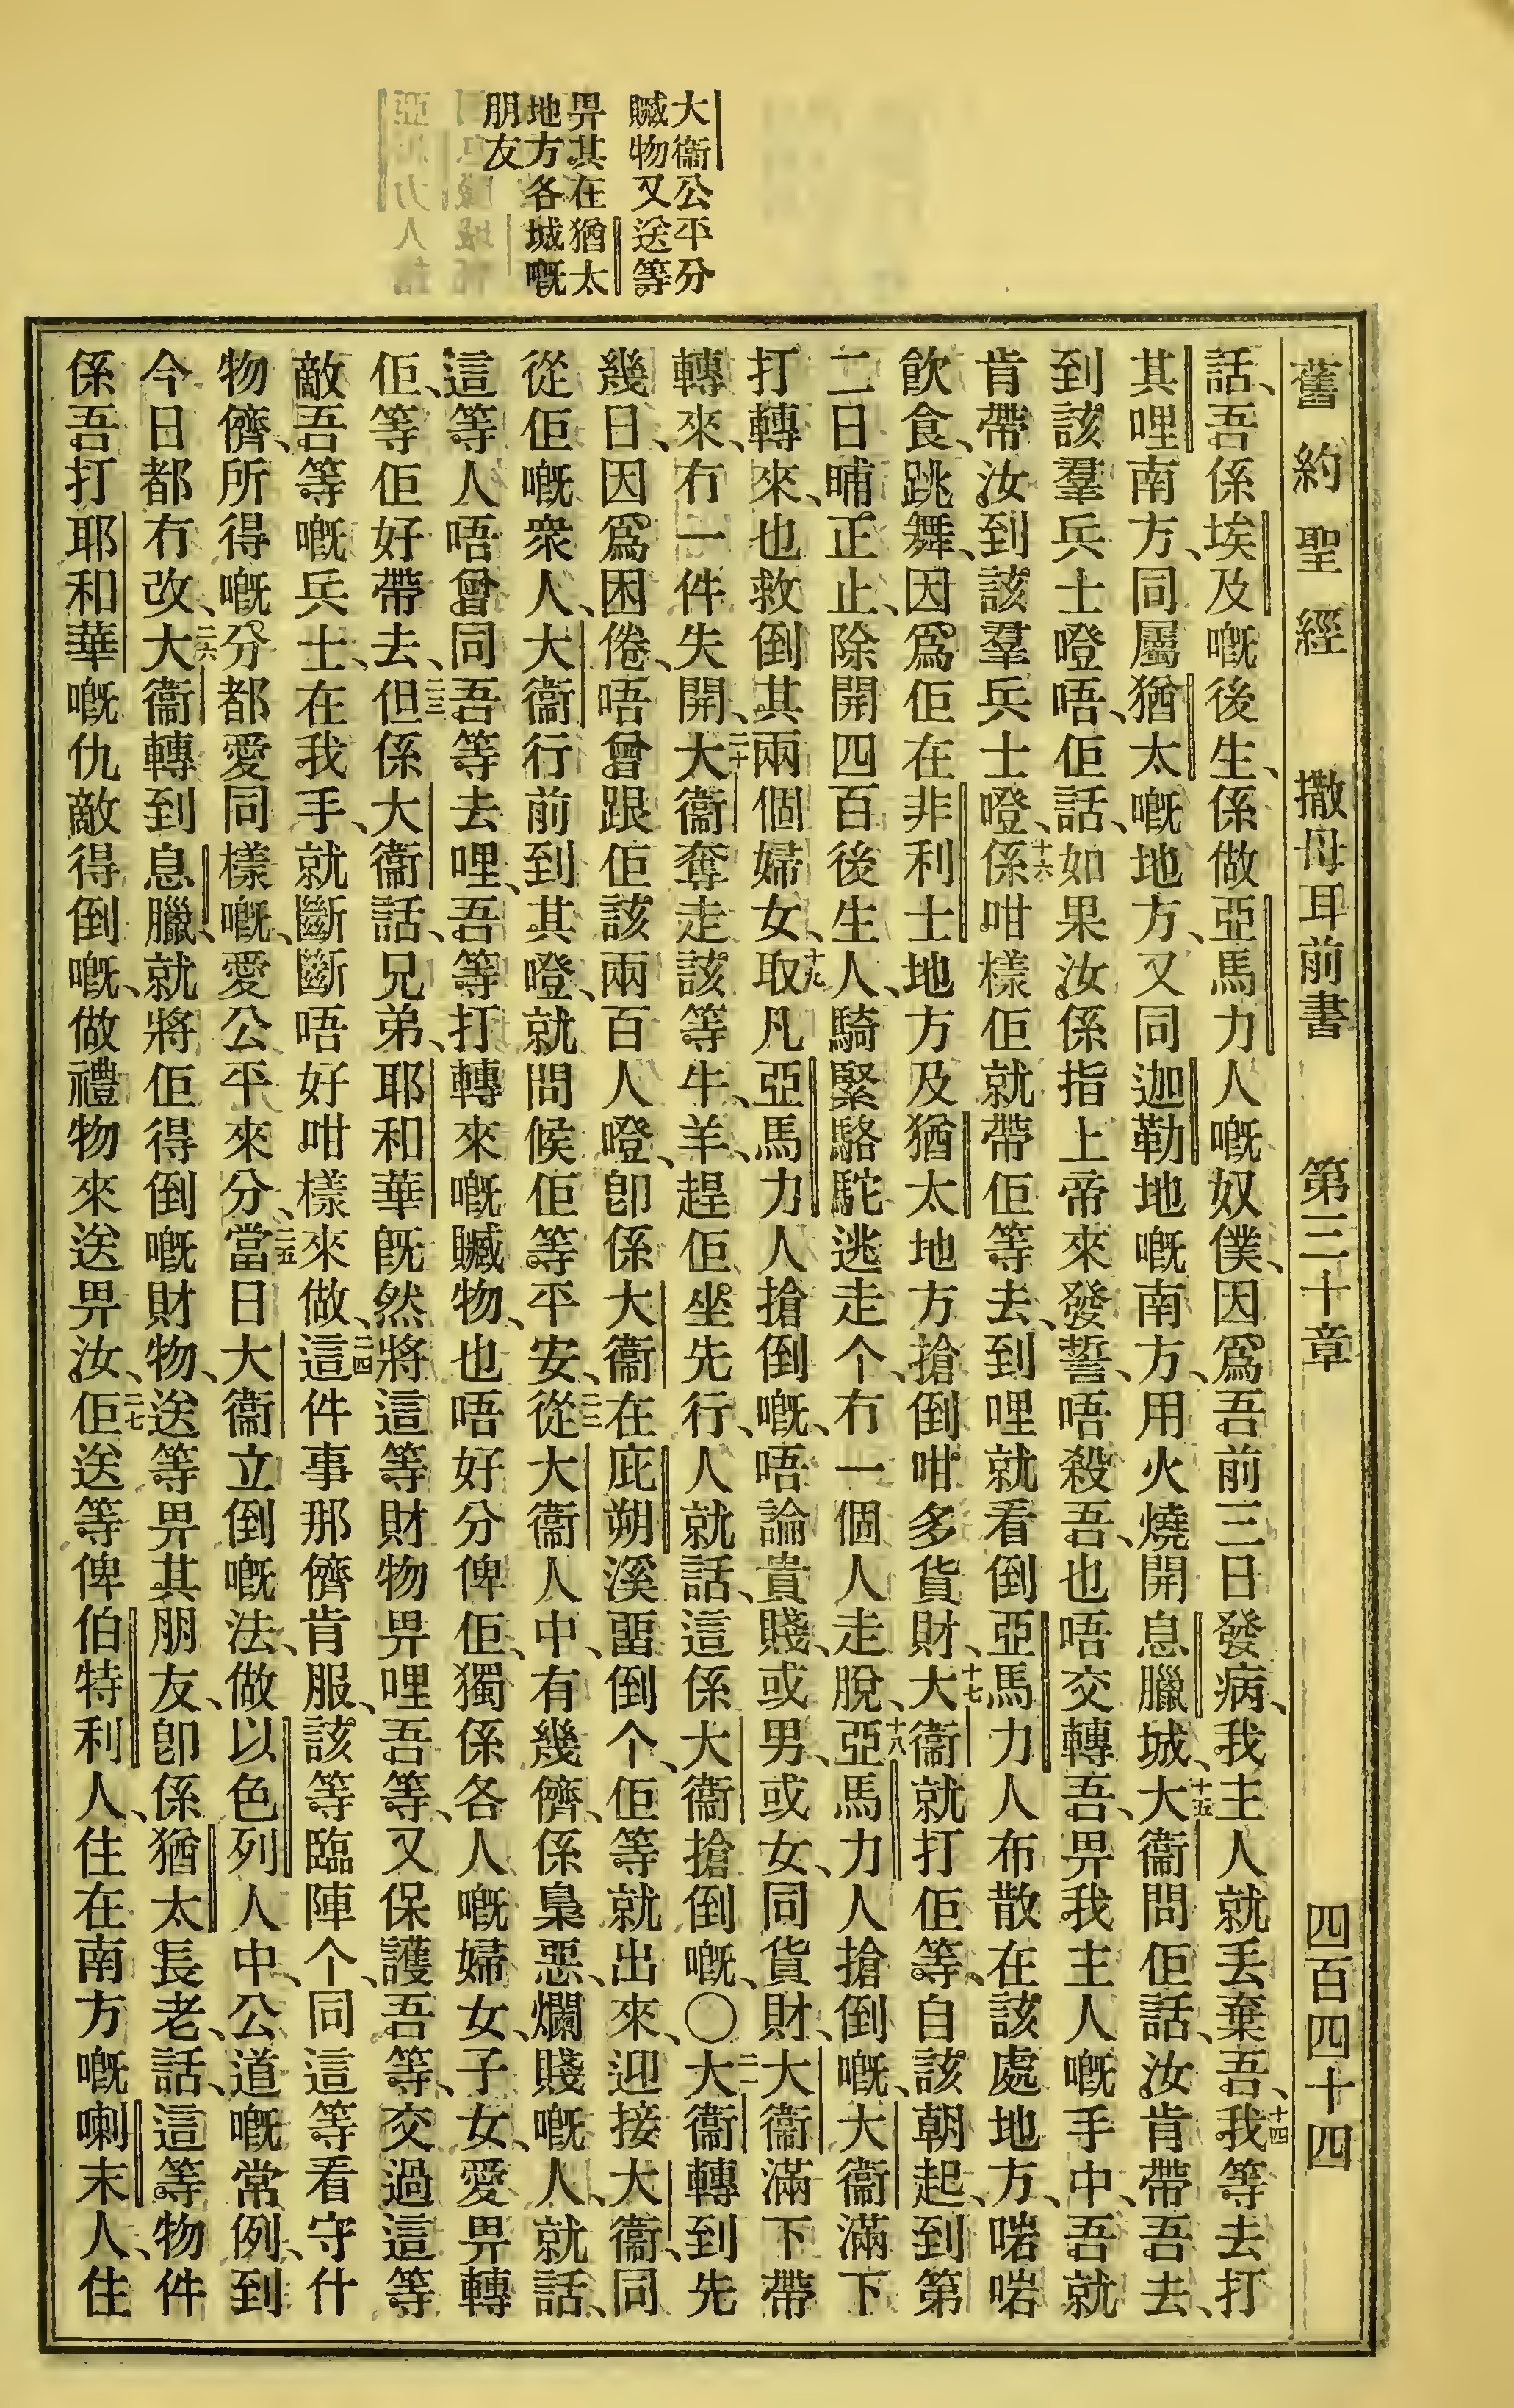 舊約聖經　撒母耳前書　第三十章　四百四十四
大衞公平分
贓物又送等
畀其在猶太
地方各城嘅
朋友
話、吾係埃及嘅後生、係做亞馬力人嘅奴僕、因爲吾前三日發病、我主人就丢棄吾、十四我等去打
其哩南方、同屬猶太嘅地方、又同迦勒地嘅南方、用火燒開息臘城、十五大衞問佢話、汝肯帶吾去、
到該羣兵士噔唔、佢話、如果汝係指上帝來發誓、唔殺吾、也唔交轉吾、畀我主人嘅手中、吾就
肯帶汝到該羣兵士噔、十六係咁樣佢就帶佢等去、到哩就看倒亞馬力人布散在該處地方、喏喏
飲食、跳舞、因爲佢在非利士地方及猶太地方搶倒咁多貨財、十七大衞就打佢等、自該朝起、到第
二日晡正止、除開四百後生人、騎緊駱駝逃走个、冇一個人走脫、十八亞馬力人搶倒嘅、大衞滿下
打轉來、也救倒其兩個婦女、十九取凡亞馬力人搶倒嘅、唔論貴賤、或男、或女、同貨財、大衞滿下帶
轉來、冇一件失開、二十大衞奪走該等牛、羊、趕佢坐先行、人就話、這係大衞搶倒嘅、〇二一大衞轉到先
幾日、因爲困倦、唔曾跟佢該兩百人噔、卽係大衞在庇朔溪畱倒个、佢等就出來、迎接大衞、同
從佢嘅衆人、大衞行前到其噔、就問候佢等平安、二二從大衞人中、有幾儕、係梟惡、爛賤嘅人、就話、
這等人唔曾同吾等去哩、吾等打轉來嘅贓物、也唔好分俾佢、獨係各人嘅婦女、子女、愛畀轉
佢、等佢好帶去、二三但係大衞話、兄弟、耶和華旣然將這等財物畀哩吾等、又保護吾等、交過這等
敵吾等嘅兵士、在我手、就斷斷唔好咁樣來做、二四這件事那儕肯服、該等臨陣个、同這等看守什
物儕、所得嘅分都愛同樣嘅、愛公平來分、二五當日大衞立倒嘅法、做以色列人中、公道嘅常例、到
今日都冇改、二六大衞轉到息臘、就將佢得倒嘅財物、送等畀其朋友、卽係猶太長老、話、這等物件
係吾打耶和華嘅仇敵得倒嘅、做禮物來送畀汝、二七佢送等俾伯特利人、住在南方嘅喇末人、住